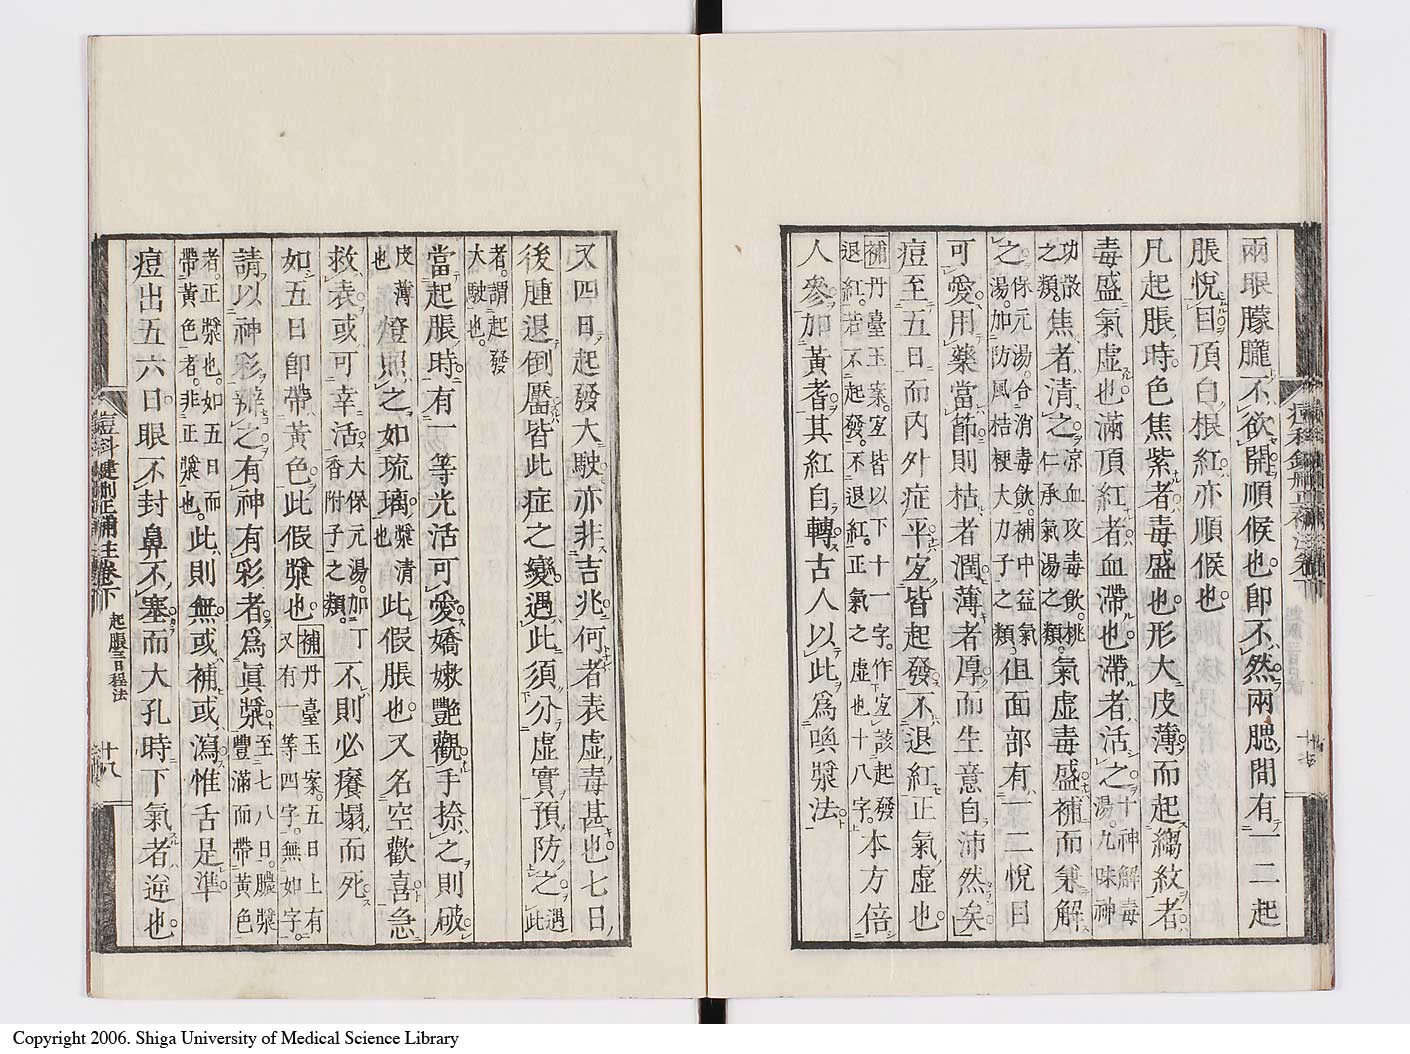 兩眼朦朧不欲開順候也卽不然兩腮間有一二起
脹悅目頂白根紅亦順候也
凡起脹時色焦紫者毒盛也形大皮薄而起縐紋者
毒盛氣虛也滿頂紅者血滯也滯者活之十神解毒湯九味神
功散之類焦者清之涼血攻毒飲桃仁承氣湯之類氣虛毒盛補而兼解
之保元湯合消毒飲補中益氣湯加防風桔梗大力子之類但面部有一二悅目
可愛用藥當節則枯者潤薄者厚而生意自沛然矣
痘至五日而內外症平寔皆起發不退紅正氣虛也
補丹臺玉案寔皆以下十一字作寔該起發退紅若不起發不退紅正氣之虛也十八字本方倍
人參加黃耆其紅自轉古人以此爲喚漿法
又四日起發大駛亦非吉兆何者表虛毒甚也七日
後腫退倒靨皆此症之變遇此須分虛實預防之遇此
者謂起發大駛也
當起脹時有一等光活可愛嬌嫩艷觀手捺之則破
皮薄也燈照之如琉璃漿清也此假脹也又名空歡喜急
救表或可幸活大保元湯加香附子之類丁不則必癢塌而死
如五日卽帶黃色此假漿也補丹臺玉案五日上有又有一等四字無如字
請以神彩辨之有神有彩者爲眞漿至七八日膿漿豐滿而帶黃色
者正漿也如五日而帶黃色者非正漿也此則無或補或瀉惟舌是準
痘出五六日眼不封鼻不塞而大孔時下氣者逆也
痘科鍵刪正補註卷下
起脹三日程法
十八
Copyright 2006. Shiga University of Medical Science Library